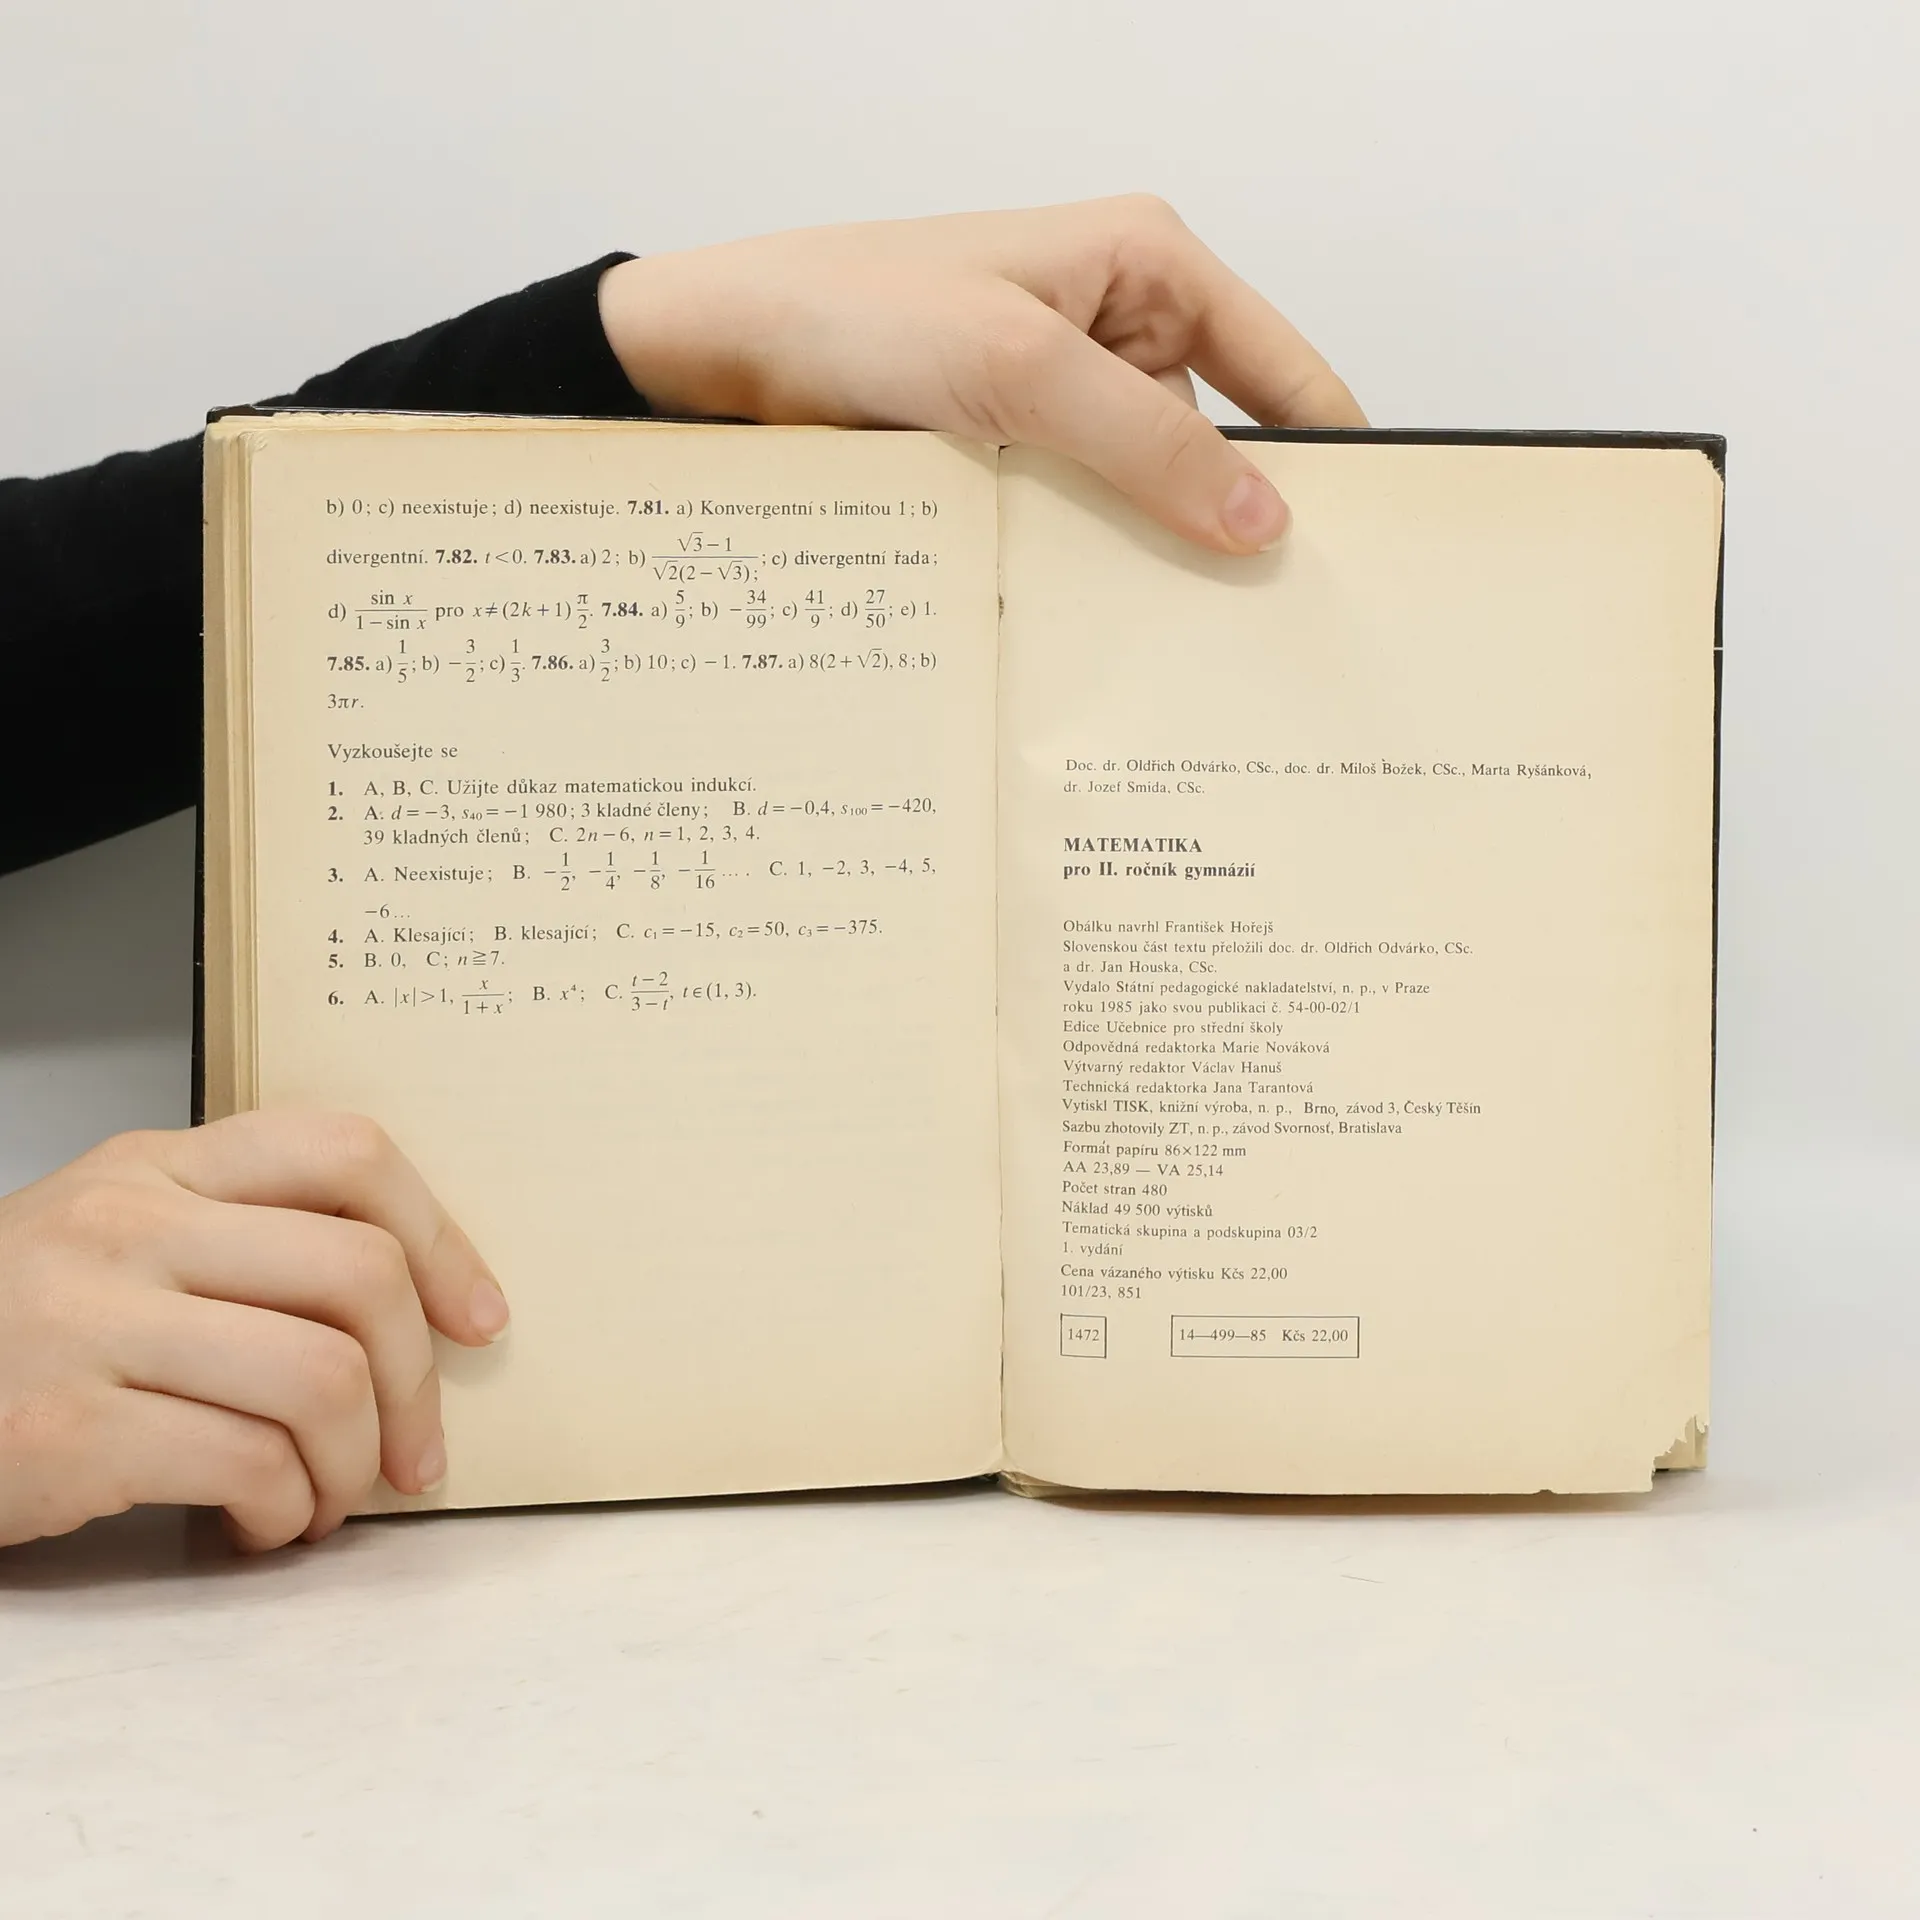 b) 0; c) neexistuje; d) neexistuje. 7.81. a) Konvergentní s limitou 1; b)
divergentní. 7.82. t<0. 7.83. a) 2; b) (√3−1)/(√2(2−√3)); c) divergentní řada;
d) sin x/(1−sin x) pro x≠(2k+1)π/2. 7.84. a) 5/9; b) −34/99; c) 41/9; d) 27/50; e) 1.
7.85. a) 1/5; b) −3/2; c) 1/3. 7.86. a) 3/2; b) 10; c) −1. 7.87. a) 8(2+√2), 8; b)
3πr.
Vyzkoušejte se
1. A, B, C. Užijte důkaz matematickou indukcí.
2. A. d=−3, s₄₀=−1 980; 3 kladné členy; B. d=−0,4, s₁₀₀=−420,
39 kladných členů; C. 2n−6, n=1, 2, 3, 4.
3. A. Neexistuje; B. −1/2, −1/4, −1/8, −1/16 ... . C. 1, −2, 3, −4, 5,
−6...
4. A. Klesající; B. klesající; C. c₁=−15, c₂=50, c₃=−375.
5. B. 0, C; n≧7.
6. A. |x|>1, x/(1+x); B. x⁴; C. (t−2)/(3−t), t∈(1, 3).
Doc. dr. Oldřich Odvárko, CSc., doc. dr. Miloš Božek, CSc., Marta Ryšánková,
dr. Jozef Smida, CSc.
MATEMATIKA
pro II. ročník gymnázií
Obálku navrhl František Hořejš
Slovenskou část textu přeložili doc. dr. Oldřich Odvárko, CSc.
a dr. Jan Houska, CSc.
Vydalo Státní pedagogické nakladatelství, n. p., v Praze
roku 1985 jako svou publikaci č. 54-00-02/1
Edice Učebnice pro střední školy
Odpovědná redaktorka Marie Nováková
Výtvarný redaktor Václav Hanuš
Technická redaktorka Jana Tarantová
Vytiskl TISK, knižní výroba, n. p., Brno, závod 3, Český Těšín
Sazbu zhotovily ZT, n. p., závod Svornosť, Bratislava
Formát papíru 86×122 mm
AA 23,89 — VA 25,14
Počet stran 480
Náklad 49 500 výtisků
Tematická skupina a podskupina 03/2
1. vydání
Cena vázaného výtisku Kčs 22,00
101/23, 851
1472 14—499—85 Kčs 22,00